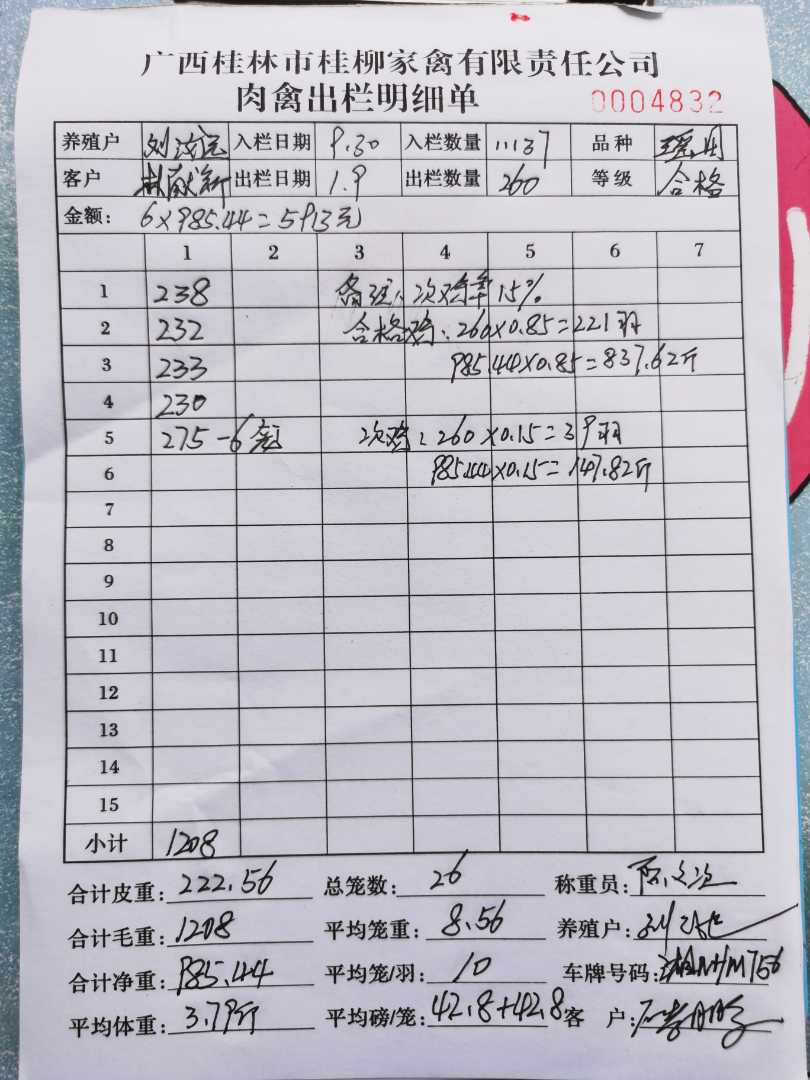 广西桂林市桂柳家禽有限责任公司
肉禽出栏明细单 0004832
养殖户 入栏日期 9.30 入栏数量 11137 品种
客户 林献新 出栏日期 1.9 出栏数量 260 等级 合格
金额: 6×985.44=5913元
1 2 3 4 5 6 7
1 238 备注: 次鸡率15%
2 232 合格鸡: 260×0.85=221羽
3 233 985.44×0.85=837.62斤
4 230
5 275-6 次鸡: 260×0.15=39羽
6 985.44×0.15=147.82斤
7
8
9
10
11
12
13
14
15
小计 1208
合计皮重: 222.56 总笼数: 26 称重员:
合计毛重: 1208 平均笼重: 8.56 养殖户:
合计净重: 985.44 平均笼/羽: 10 车牌号码:
平均体重: 3.79斤 平均磅/笼: 42.8+42.8 客户: